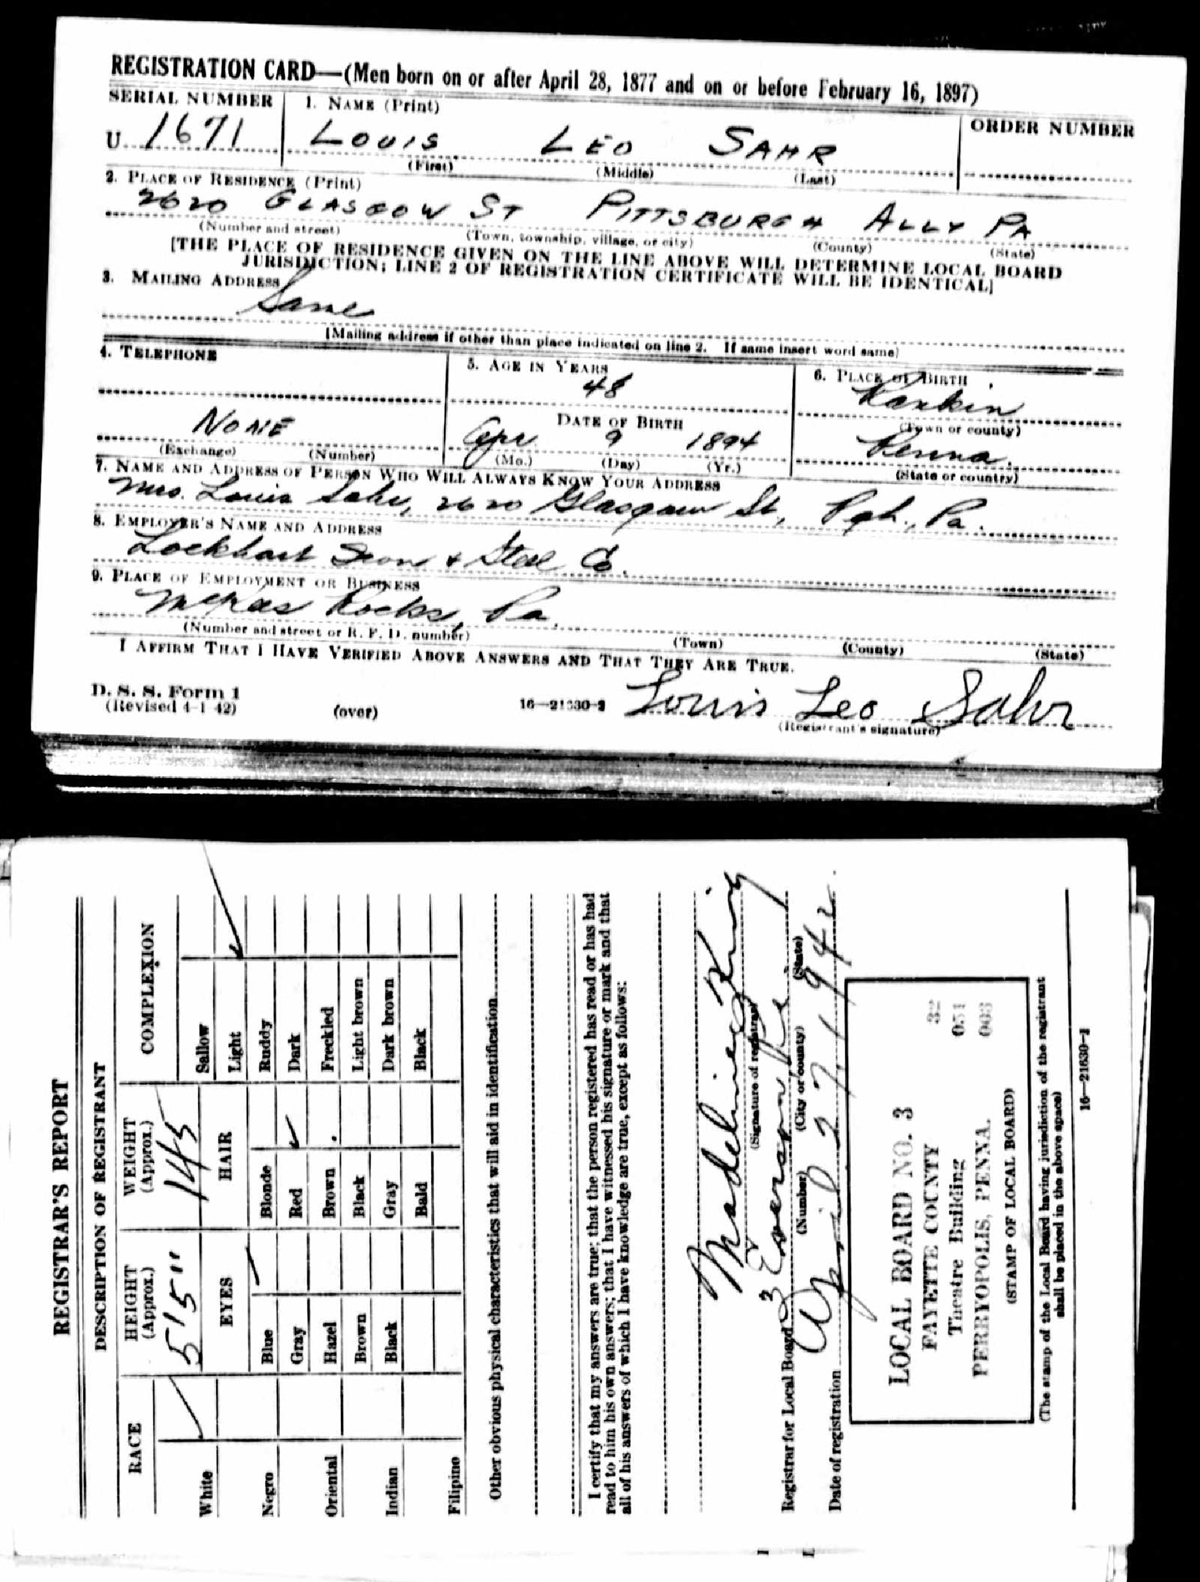 REGISTRATION CARD—(Men born on or after April 28, 1877 and on or before February 16, 1897)
SERIAL NUMBER 1. NAME (Print) ORDER NUMBER
U 1671 LOUIS LEO SAHR
(First) (Middle) (Last)
2. PLACE OF RESIDENCE (Print)
2620 GLASGOW ST PITTSBURGH ALLY PA
(Number and street) (Town, township, village, or city) (County) (State)
[THE PLACE OF RESIDENCE GIVEN ON THE LINE ABOVE WILL DETERMINE LOCAL BOARD
JURISDICTION; LINE 2 OF REGISTRATION CERTIFICATE WILL BE IDENTICAL]
3. MAILING ADDRESS
Same
[Mailing address if other than place indicated on line 2. If same insert word same]
4. TELEPHONE 5. AGE IN YEARS 6. PLACE OF BIRTH
48 Rankin
DATE OF BIRTH (Town or county)
NONE Apr 9 1894 Penna.
(Exchange) (Number) (Mo.) (Day) (Yr.) (State or country)
7. NAME AND ADDRESS OF PERSON WHO WILL ALWAYS KNOW YOUR ADDRESS
Mrs. Louis Sahr, 2620 Glasgow St, Pgh., Pa.
8. EMPLOYER'S NAME AND ADDRESS
Lockhart Iron & Steel Co.
9. PLACE OF EMPLOYMENT OR BUSINESS
McKees Rocks, Pa.
(Number and street or R. F. D. number) (Town) (County) (State)
I AFFIRM THAT I HAVE VERIFIED ABOVE ANSWERS AND THAT THEY ARE TRUE.
D. S. S. Form 1
(Revised 4-1-42) (over) 16—21630-2 Louis Leo Sahr
(Registrant's signature)
REGISTRAR'S REPORT
DESCRIPTION OF REGISTRANT
RACE HEIGHT (Approx.) WEIGHT (Approx.) COMPLEXION
5'5" 145
White EYES HAIR Sallow
Light
Negro Blue Blonde Ruddy
Gray Red Dark
Oriental Hazel Brown Freckled
Brown Black Light brown
Indian Black Gray Dark brown
Bald Black
Filipino
Other obvious physical characteristics that will aid in identification
I certify that my answers are true; that the person registered has read or has had
read to him his own answers; that I have witnessed his signature or mark and that
all of his answers of which I have knowledge are true, except as follows:
Madeline King
(Signature of registrar)
Registrar for Local Board 3 Everson Pa
(Number) (City or county) (State)
Date of registration April 27, 1942.
LOCAL BOARD NO. 3 32
FAYETTE COUNTY 051
Theatre Building 003
PERRYOPOLIS, PENNA.
(STAMP OF LOCAL BOARD)
(The stamp of the Local Board having jurisdiction of the registrant
shall be placed in the above space)
16—21630-2